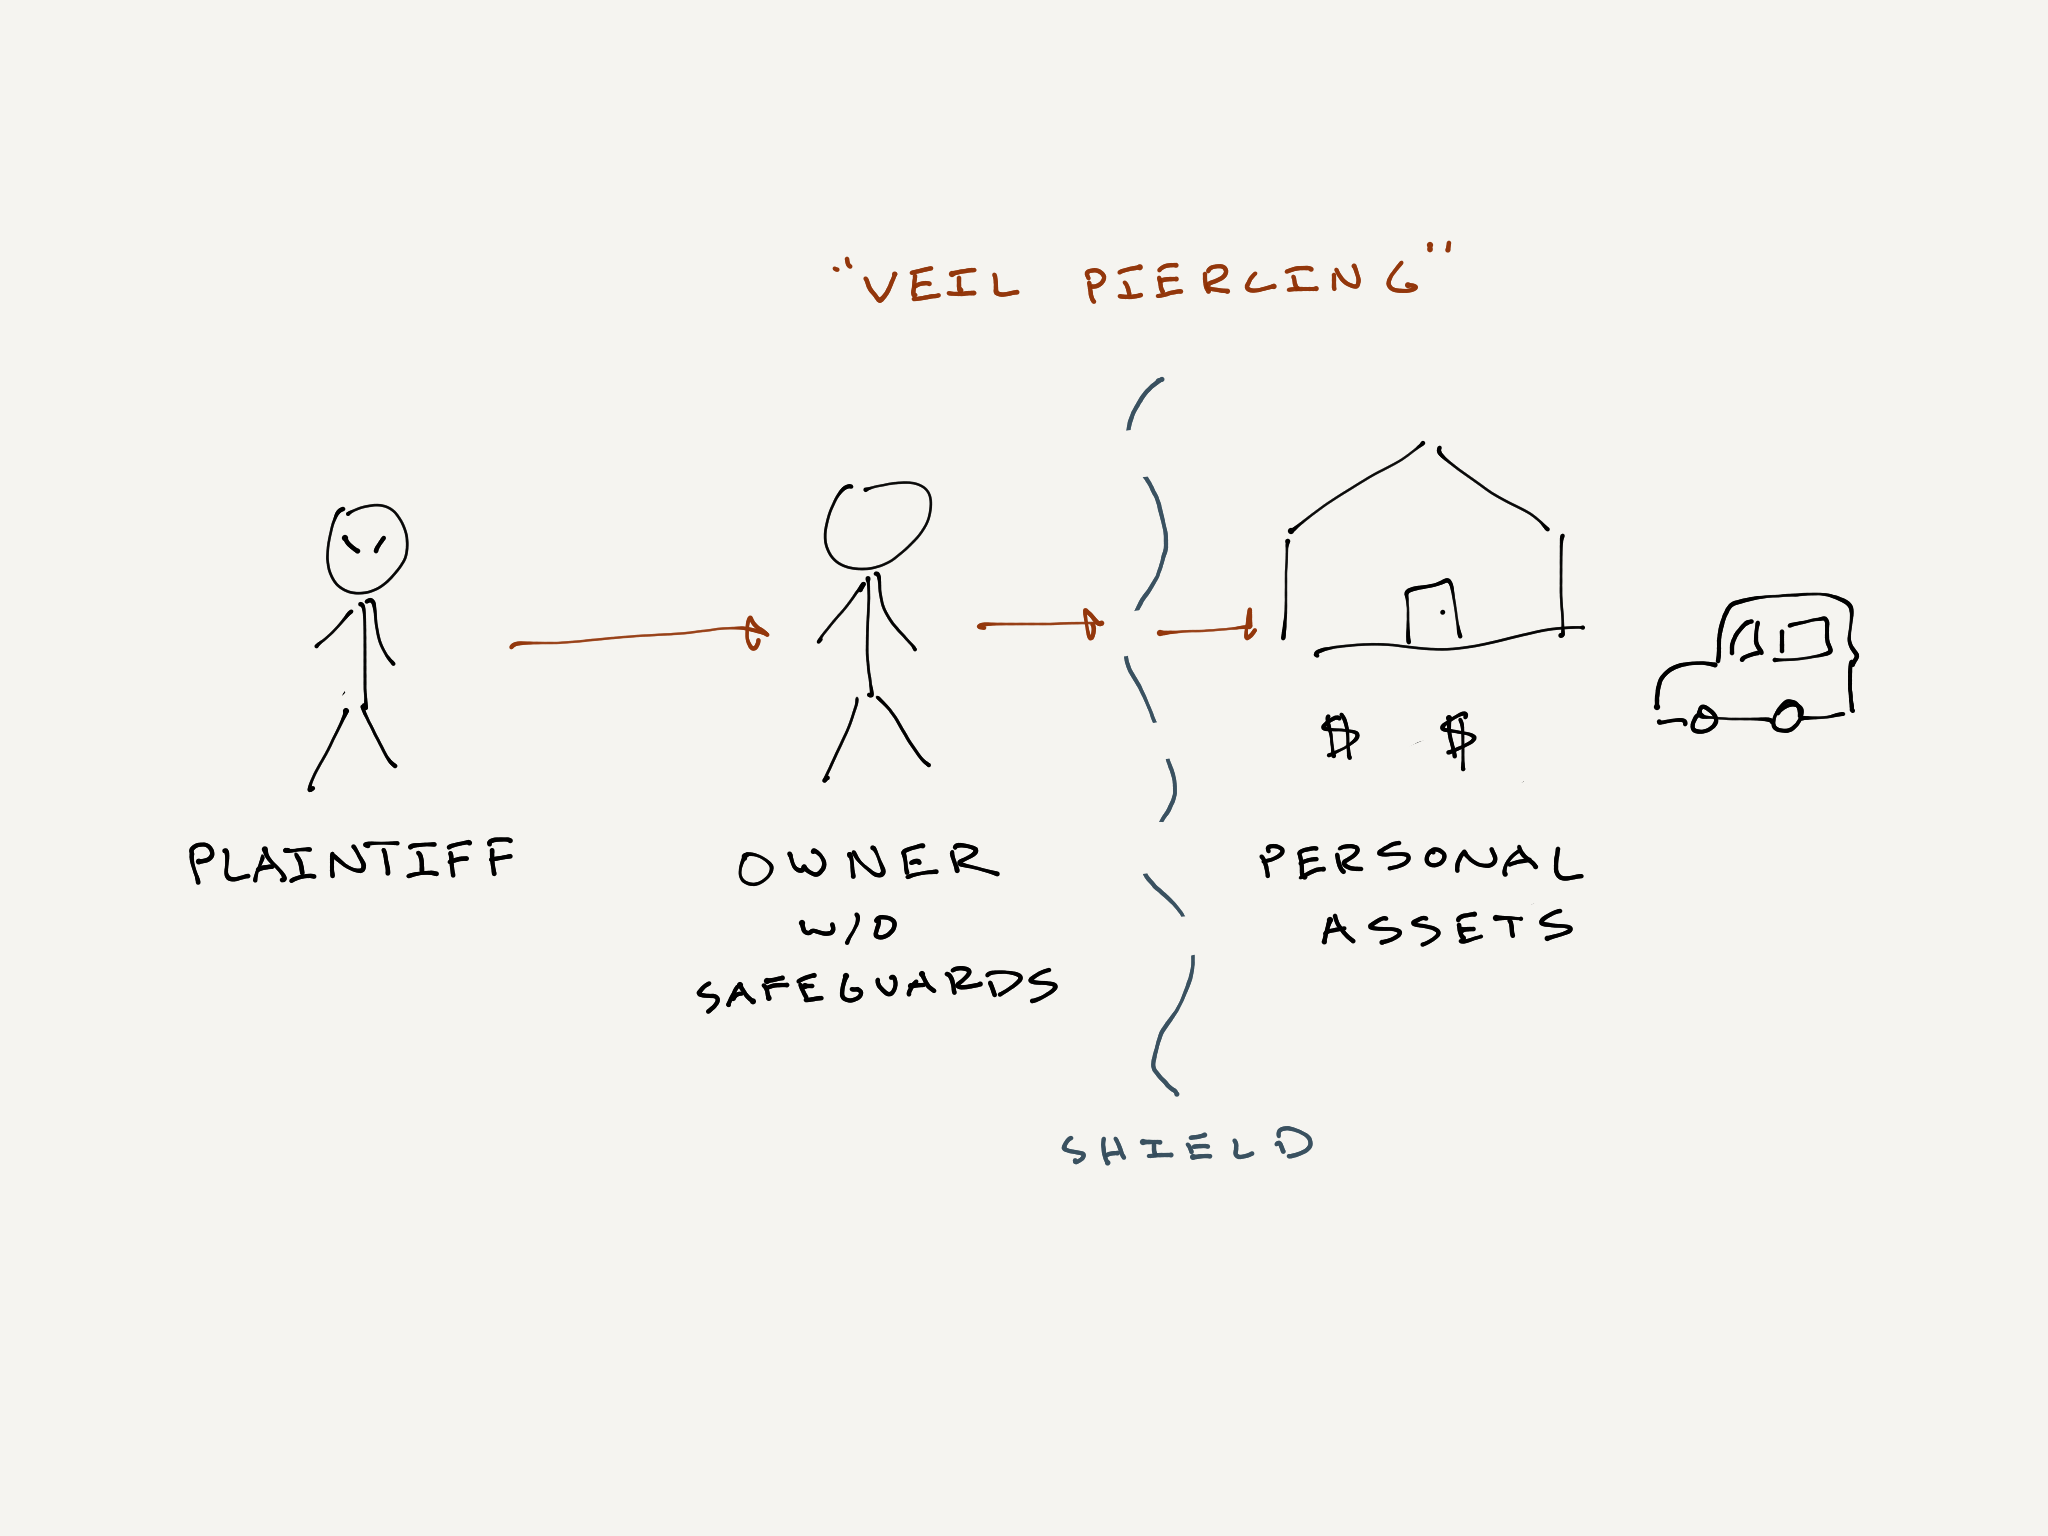 "VEIL PIERCING"
PLAINTIFF
OWNER
W/O
SAFEGUARDS
PERSONAL
ASSETS
$ $
SHIELD